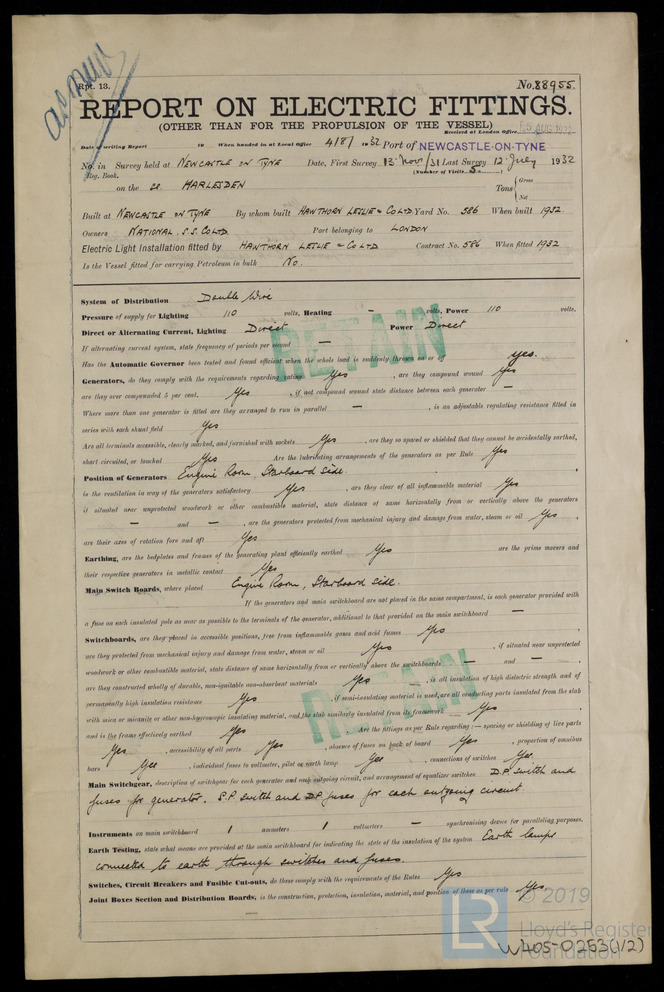 Rpt. 13.
No. 88955
REPORT ON ELECTRIC FITTINGS.
(OTHER THAN FOR THE PROPULSION OF THE VESSEL)
Received at London Office
Date of writing Report 19 When handed in at Local Office 4/8/1932 Port of NEWCASTLE-ON-TYNE
No. in Survey held at NEWCASTLE ON TYNE Date, First Survey 13 Nov/31 Last Survey 12 July 1932
Reg. Book. (Number of Visits
on the HARLESDEN Tons { Gross
Net
Built at NEWCASTLE ON TYNE By whom built HAWTHORN LESLIE & CO LTD Yard No. 586 When built 1932
Owners NATIONAL S.S. CO LTD Port belonging to LONDON
Electric Light Installation fitted by HAWTHORN LESLIE & CO LTD Contract No. 586 When fitted 1932
Is the Vessel fitted for carrying Petroleum in bulk No.
System of Distribution Double Wire
Pressure of supply for Lighting 110 volts, Heating - volts, Power 110 volts.
Direct or Alternating Current, Lighting Direct Power Direct
If alternating current system, state frequency of periods per second —
Has the Automatic Governor been tested and found efficient when the whole load is suddenly thrown on or off yes.
Generators, do they comply with the requirements regarding rating Yes, are they compound wound Yes
are they over compounded 5 per cent. Yes, if not compound wound state distance between each generator —
Where more than one generator is fitted are they arranged to run in parallel —, is an adjustable regulating resistance fitted in
series with each shunt field Yes
Are all terminals accessible, clearly marked, and furnished with sockets Yes, are they so spaced or shielded that they cannot be accidentally earthed,
short circuited, or touched Yes Are the lubricating arrangements of the generators as per Rule Yes
Position of Generators Engine Room, Starboard Side.
is the ventilation in way of the generators satisfactory Yes, are they clear of all inflammable material Yes
if situated near unprotected woodwork or other combustible material, state distance of same horizontally from or vertically above the generators
— and —, are the generators protected from mechanical injury and damage from water, steam or oil Yes,
are their axes of rotation fore and aft Yes
Earthing, are the bedplates and frames of the generating plant efficiently earthed Yes are the prime movers and
their respective generators in metallic contact Yes
Main Switch Boards, where placed Engine Room, Starboard Side.
If the generators and main switchboard are not placed in the same compartment, is each generator provided with
a fuse on each insulated pole as near as possible to the terminals of the generator, additional to that provided on the main switchboard —
Switchboards, are they placed in accessible positions, free from inflammable gases and acid fumes Yes,
are they protected from mechanical injury and damage from water, steam or oil Yes, if situated near unprotected
woodwork or other combustible material, state distance of same horizontally from or vertically above the switchboards — and —,
are they constructed wholly of durable, non-ignitable non-absorbent materials Yes, is all insulation of high dielectric strength and of
permanently high insulation resistance Yes, if semi-insulating material is used, are all conducting parts insulated from the slab
with mica or micanite or other non-hygroscopic insulating material, and the slab similarly insulated from its framework Yes,
and is the frame effectively earthed Yes Are the fittings as per Rule regarding:— spacing or shielding of live parts
Yes, accessibility of all parts Yes, absence of fuses on back of board Yes, proportion of omnibus
bars Yes, individual fuses to voltmeter, pilot or earth lamp Yes, connections of switches Yes.
Main Switchgear, description of switchgear for each generator and each outgoing circuit, and arrangement of equalizer switches D.P. Switch and
fuses for generator. S.P. switch and D.P. fuses for each outgoing circuit.
Instruments on main switchboard 1 ammeters 1 voltmeters — synchronising device for paralleling purposes.
Earth Testing, state what means are provided at the main switchboard for indicating the state of the insulation of the system Earth lamps
connected to earth through switches and fuses.
Switches, Circuit Breakers and Fusible Cut-outs, do these comply with the requirements of the Rules Yes
Joint Boxes Section and Distribution Boards, is the construction, protection, insulation, material, and position of these as per rule Yes
RETAIN
RETAIN
LR © 2019
Lloyd's Register
Foundation
W405-0253(1/2)